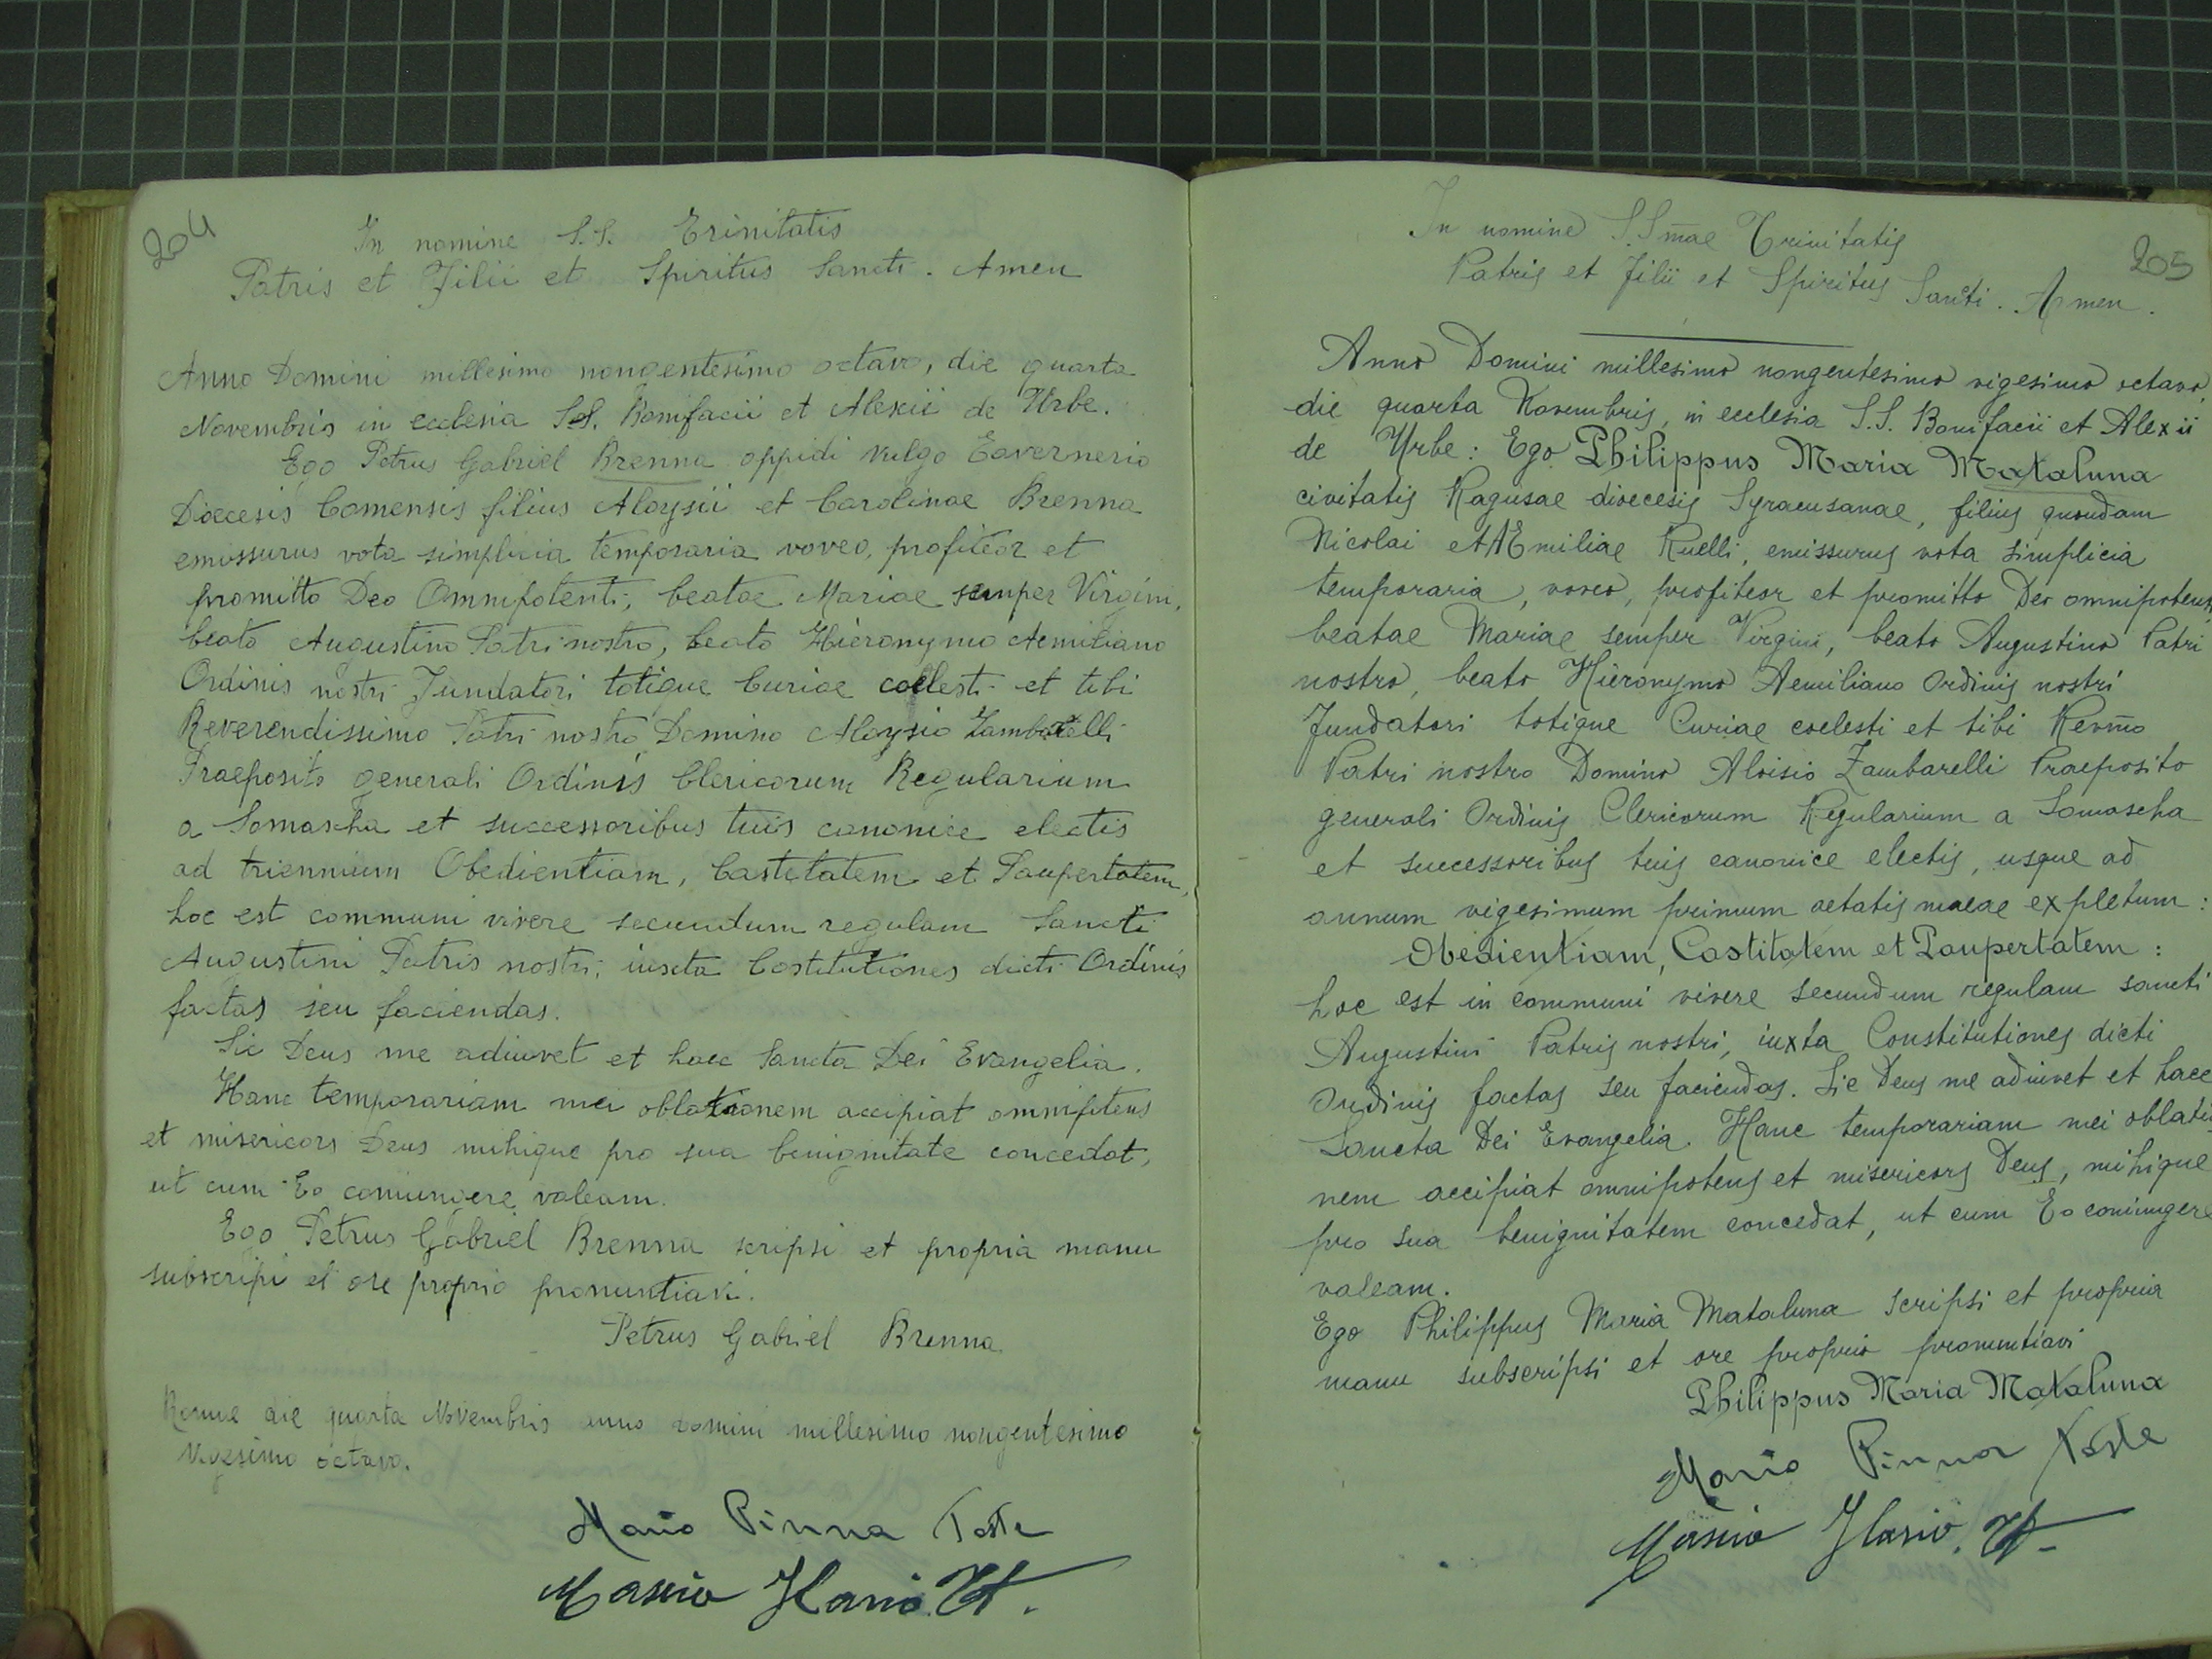 204
In nomine S.S. Trinitatis
Patris et Filii et Spiritus Sancti. Amen
Anno Domini millesimo nongentesimo octavo, die quarta
Novembris in ecclesia S.S. Bonifacii et Alexii de Urbe.
Ego Petrus Gabriel Brenna oppidi vulgo Tavernerio
Dioecesis Comensis filius Aloysii et Carolinae Brenna
emissurus vota simplicia temporaria voveo, profiteor et
promitto Deo Omnipotenti, beatae Mariae semper Virgini,
beato Augustino Patri nostro, beato Hieronymo Aemiliano
Ordinis nostri Fundatori totique Curiae coelesti et tibi
Reverendissimo Patri nostro Domino Aloysio Zambarelli
Praeposito generali Ordinis Clericorum Regularium
a Somascha et successoribus tuis canonice electis
ad triennium Obedientiam, Castitatem et Paupertatem,
hoc est communi vivere secundum regulam Sancti
Augustini Patris nostri, iuxta Costitutiones dicti Ordinis
factas seu faciendas.
Sic Deus me adiuvet et haec Sancta Dei Evangelia.
Hanc temporariam mei oblationem accipiat omnipotens
et misericors Deus mihique pro sua benignitate concedat,
ut cum Eo coniungere valeam.
Ego Petrus Gabriel Brenna scripsi et propria manu
subscripi et ore proprio pronuntiavi.
Petrus Gabriel Brenna
Romae die quarta Novembris anno domini millesimo nongentesimo
vigesimo octavo.
Mario Pinna Teste
Mascia Ilario. T.
205
In nomine S.Smae Trinitatis
Patris et Filii et Spiritus Sancti. Amen.
Anno Domini millesimo nongentesimo vigesimo octavo,
die quarta Novembris, in ecclesia S.S. Bonifacii et Alexii
de Urbe: Ego Philippus Maria Mataluna
civitatis Ragusae dioecesis Syracusanae, filius quondam
Nicolai et AEmiliae Ruelli, emissurus vota simplicia
temporaria, voveo, profiteor et promitto Deo omnipotenti,
beatae Mariae semper Virgini, beato Augustino Patri
nostro, beato Hieronymo Aemiliano Ordinis nostri
fundatori totique Curiae coelesti et tibi Revmo
Patri nostro Domino Aloisio Zambarelli Praeposito
generali Ordinis Clericorum Regularium a Somascha
et successoribus tuis canonice electis, usque ad
annum vigesimum primum aetatis meae expletum:
Obedientiam, Castitatem et Paupertatem:
hoc est in communi vivere secundum regulam sancti
Augustini Patris nostri, iuxta Constitutiones dicti
Ordinis factas seu faciendas. Sic Deus me adiuvet et haec
Sancta Dei Evangelia. Hanc temporariam mei oblatio-
nem accipiat omnipotens et misericors Deus, mihique
pro sua benignitatem concedat, ut cum Eo coniungere
valeam.
Ego Philippus Maria Mataluna scripsi et propria
manu subscripsi et ore proprio pronuntiavi
Philippus Maria Mataluna
Mario Pinna Teste
Mascia Ilario. T.